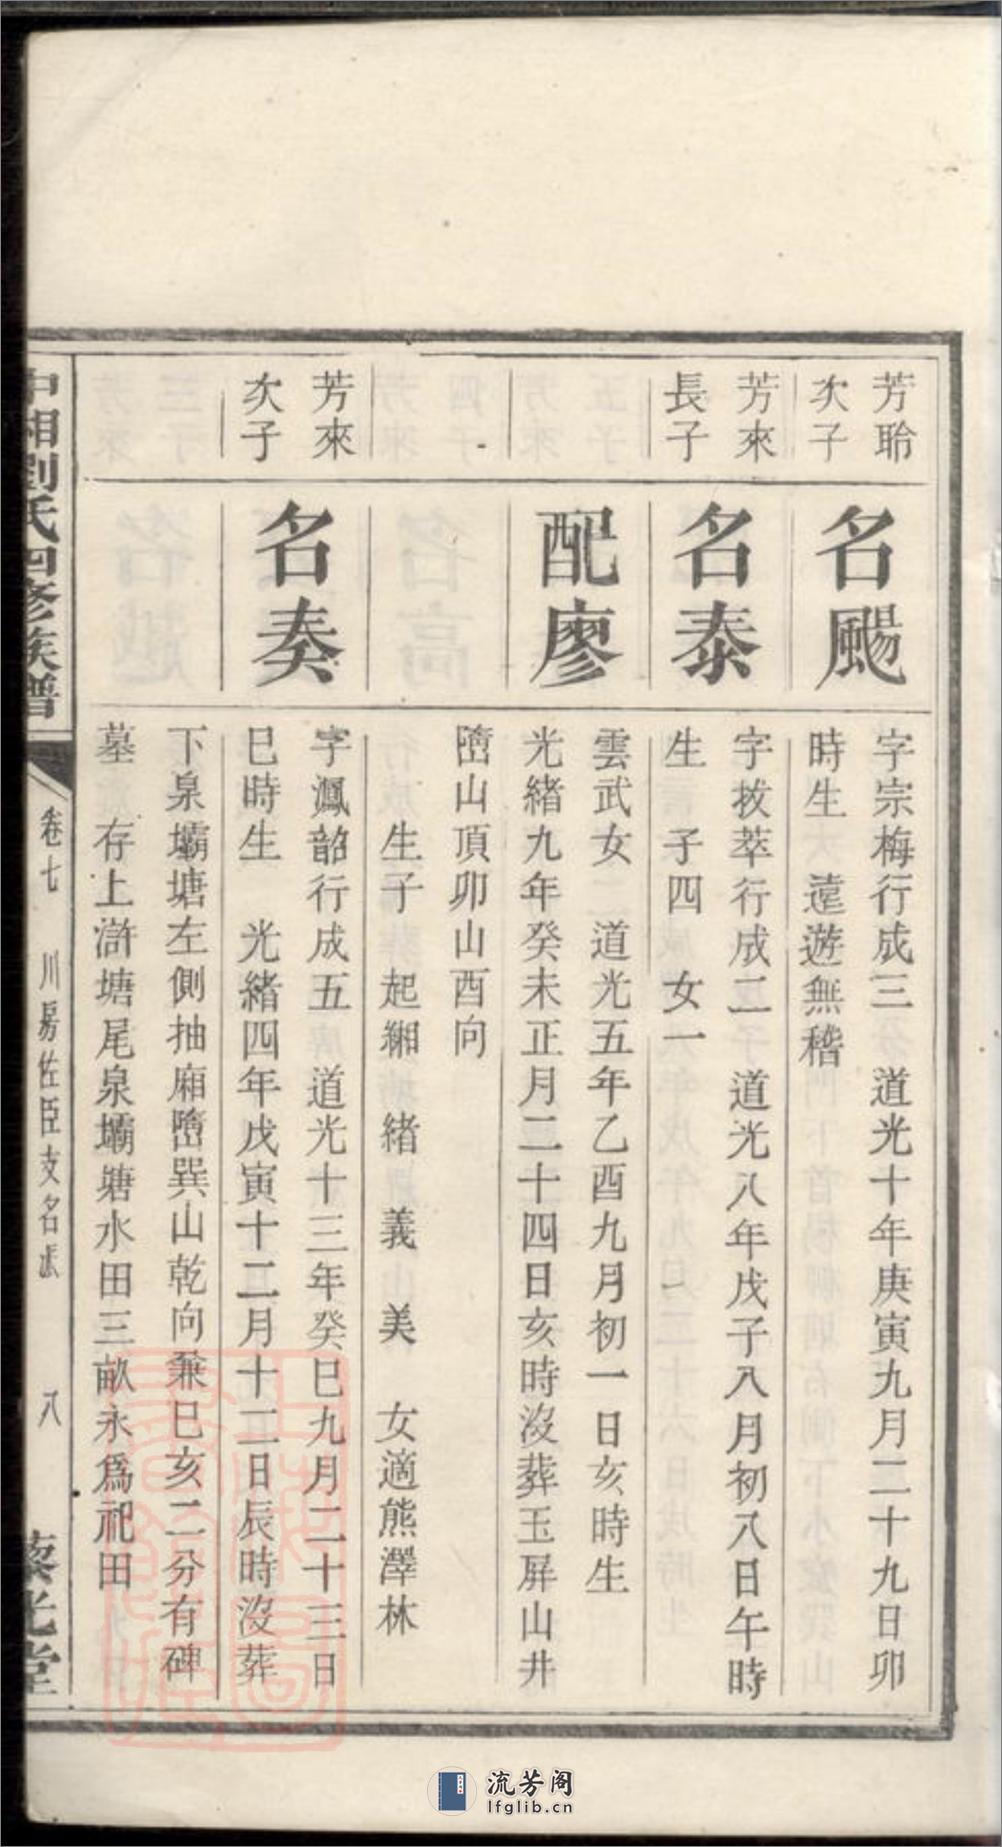 芳聆
次子
名颺
字宗梅行成三　道光十年庚寅九月二十九日卯
時生　遠遊無稽
芳來
長子
名泰
字拔萃行成二　道光八年戊子八月初八日午時
生　子四　女一
配廖
雲武女　道光五年乙酉九月初一日亥時生
光緒九年癸未正月二十四日亥時沒葬玉屏山井
磖山頂卯山酉向
生子　起緗　緒　義　美　女適熊澤林
芳來
次子
名奏
字鳳韶行成五　道光十三年癸巳九月二十三日
巳時生　光緒四年戊寅十二月十二日辰時沒葬
下泉壩塘左側抽廂磖巽山乾向兼巳亥二分有碑
墓　存上滸塘尾泉壩塘水田三畝永爲祀田
中湘劉氏四修族譜
卷七　川房佐臣支名派　八
藜光堂
流芳阁
lfglib.cn